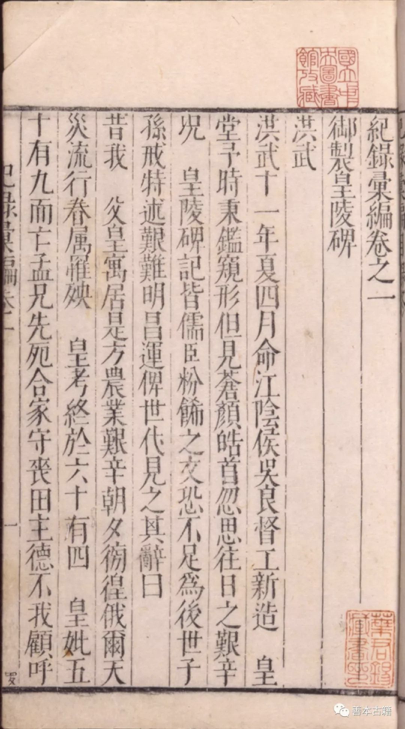 紀錄彙編卷之一
御製皇陵碑
洪武
洪武十一年夏四月命江陰侯吳良督工新造 皇
堂予時秉鑑窺形但見蒼顏皓首忽思往日之艱辛
況 皇陵碑記皆儒臣粉飾之文恐不足為後世子
孫戒特述艱難明昌運俾世代見之其辭曰
昔我 父皇寓居是方農業艱辛朝夕徬徨俄爾天
災流行眷属罹殃 皇考終於六十有四 皇妣五
十有九而亡孟兄先死合家守喪田主德不我顧呼
紀錄彙編卷之一
一
善本古籍